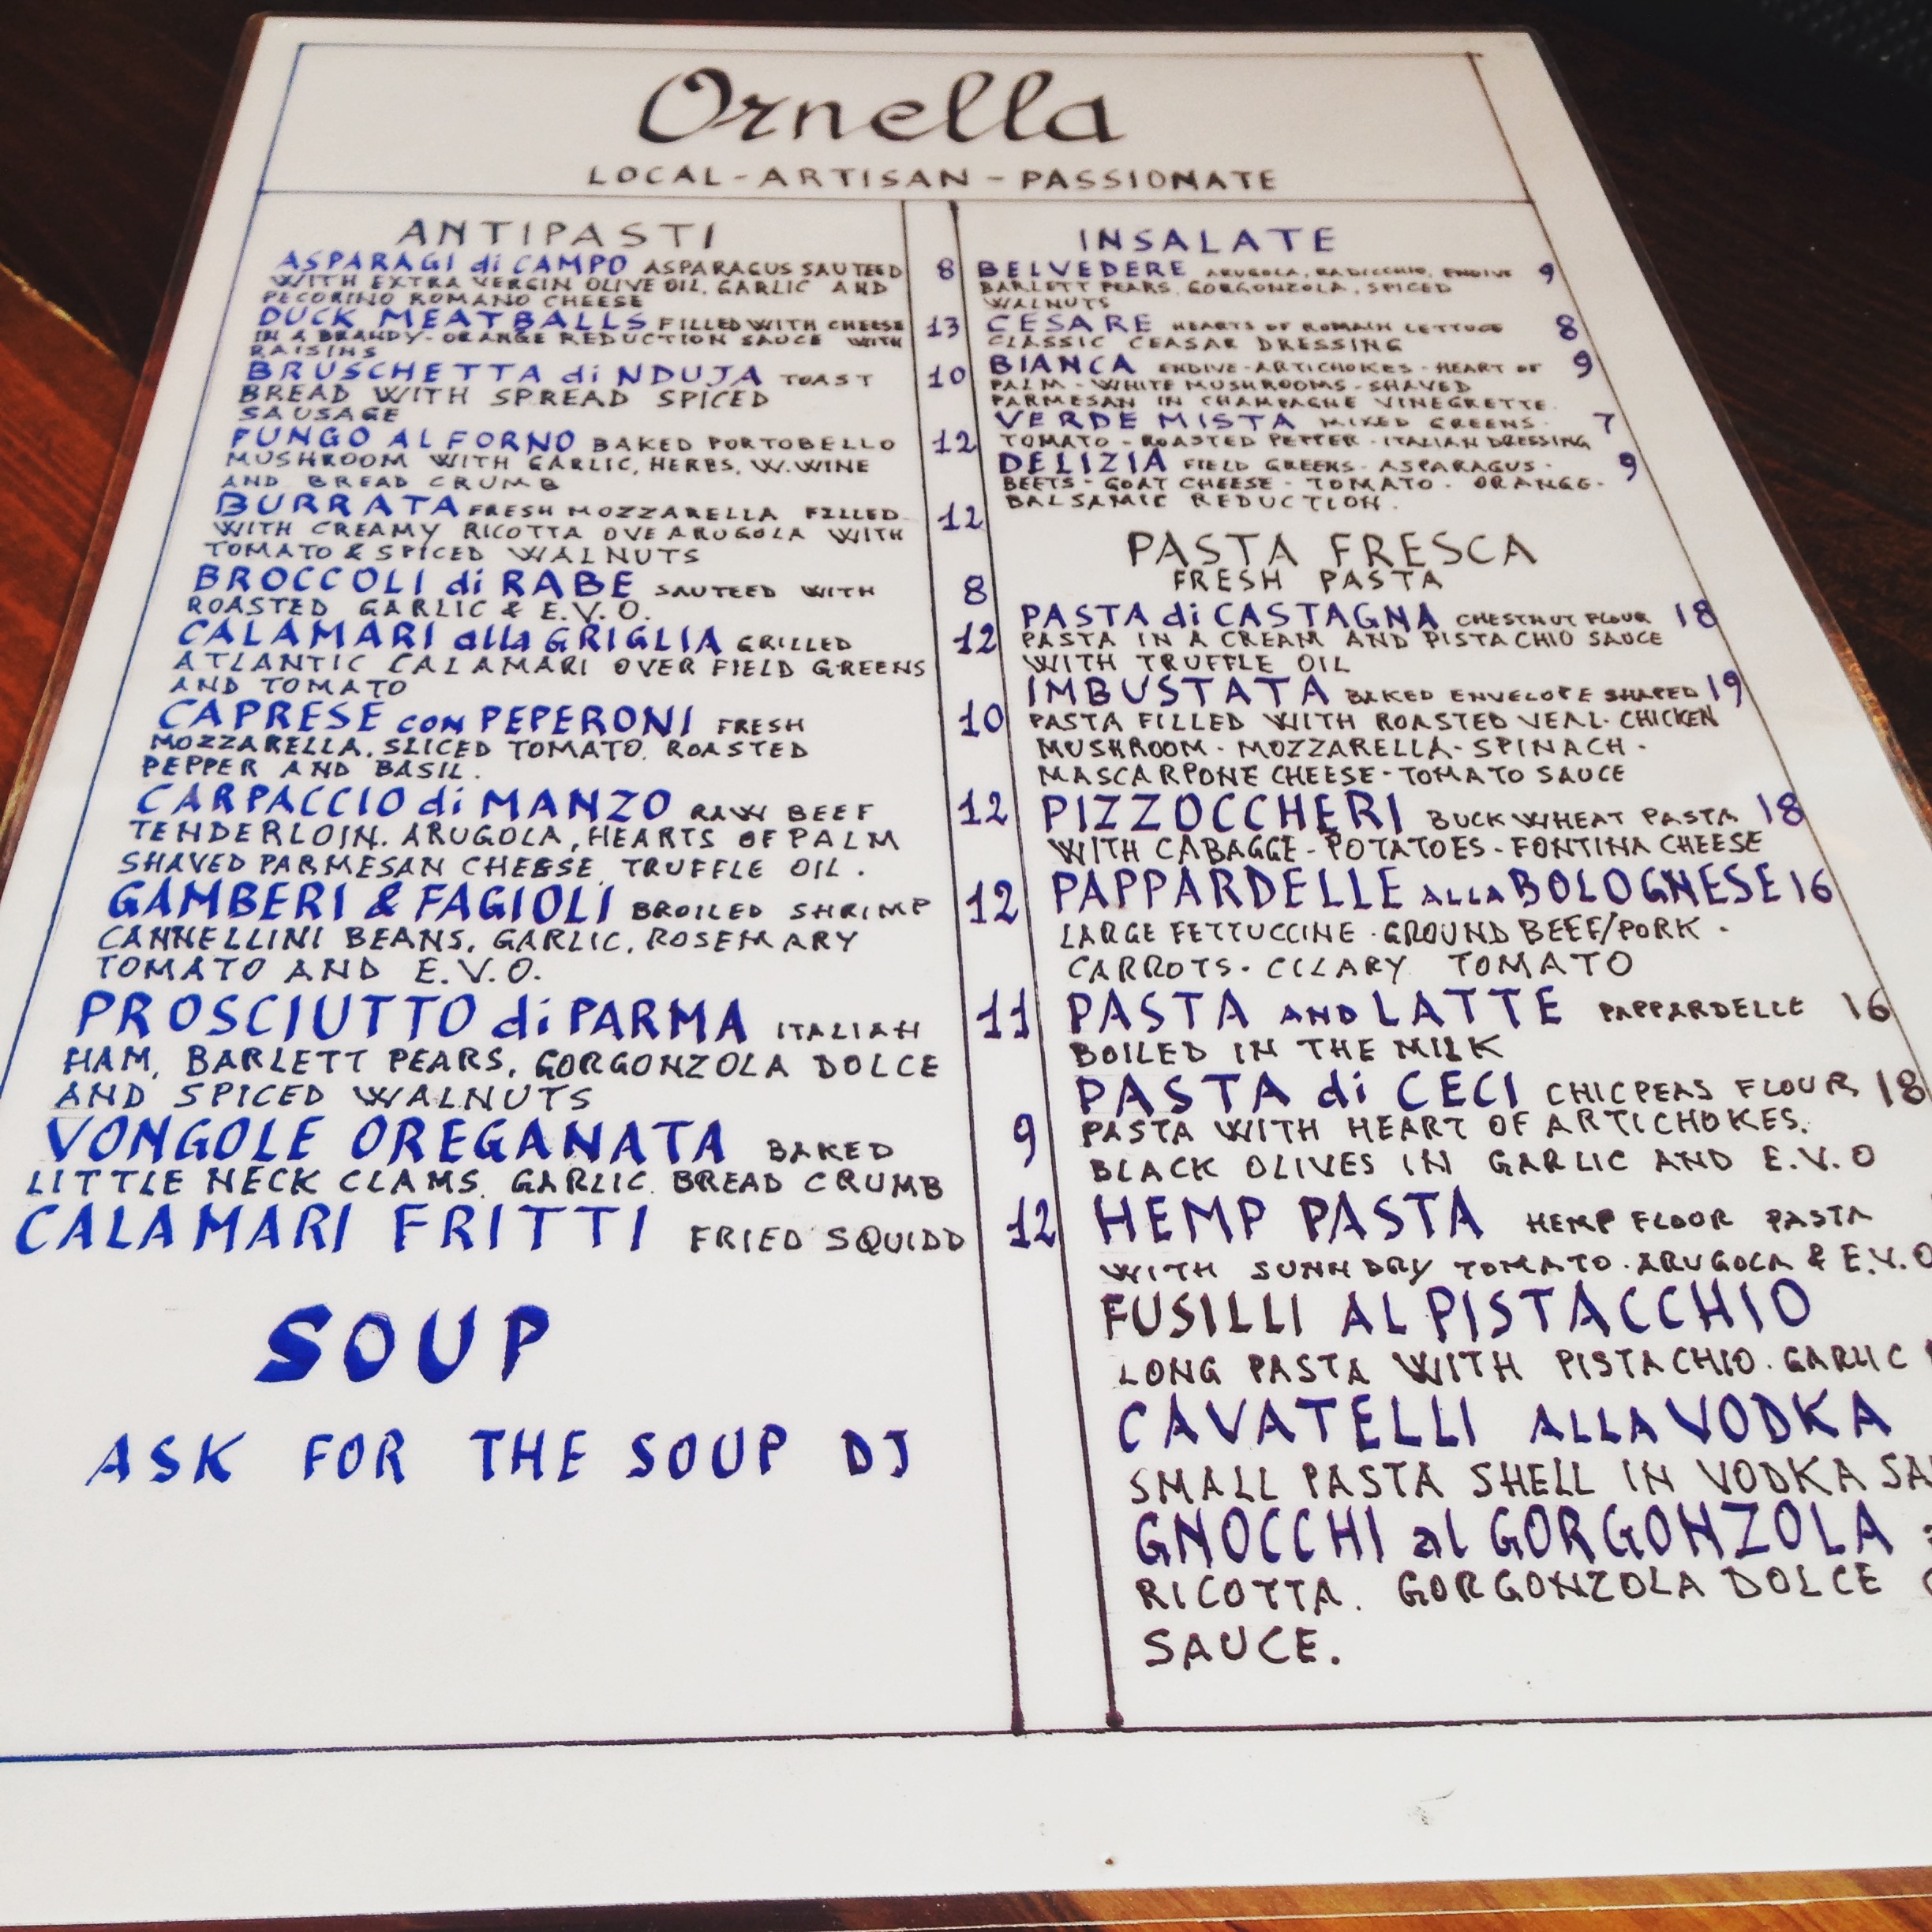 Ornella
LOCAL-ARTISAN-PASSIONATE
ANTIPASTI
ASPARAGI di CAMPO ASPARAGUS SAUTEED 8
WITH EXTRA VERGIN OLIVE OIL, GARLIC AND
PECORINO ROMANO CHEESE
DUCK MEATBALLS FILLED WITH CHEESE 13
IN A BRANDY-ORANGE REDUCTION SAUCE WITH
RAISINS
BRUSCHETTA di NDUJA TOAST 10
BREAD WITH SPREAD SPICED
SAUSAGE
FUNGO AL FORNO BAKED PORTOBELLO 12
MUSHROOM WITH GARLIC, HERBS, W. WINE
AND BREAD CRUMB
BURRATA FRESH MOZZARELLA FILLED 12
WITH CREAMY RICOTTA OVE ARUGOLA WITH
TOMATO & SPICED WALNUTS
BROCCOLI di RABE SAUTEED WITH 8
ROASTED GARLIC & E.V.O.
CALAMARI alla GRIGLIA GRILLED 12
ATLANTIC CALAMARI OVER FIELD GREENS
AND TOMATO
CAPRESE con PEPERONI FRESH 10
MOZZARELLA. SLICED TOMATO. ROASTED
PEPPER AND BASIL.
CARPACCIO di MANZO RAW BEEF 12
TENDERLOIN. ARUGOLA, HEARTS OF PALM
SHAVED PARMESAN CHEESE, TRUFFLE OIL.
GAMBERI & FAGIOLI BROILED SHRIMP 12
CANNELLINI BEANS, GARLIC, ROSEMARY
TOMATO AND E.V.O.
PROSCIUTTO di PARMA ITALIAN 11
HAM, BARLETT PEARS, GORGONZOLA DOLCE
AND SPICED WALNUTS
VONGOLE OREGANATA BAKED 9
LITTLE NECK CLAMS. GARLIC. BREAD CRUMB
CALAMARI FRITTI FRIED SQUIDD 12
SOUP
ASK FOR THE SOUP DJ
INSALATE
BELVEDERE ARUGOLA, RADICCHIO, ENDIVE 9
BARLETT PEARS, GORGONZOLA, SPICED
WALNUTS
CESARE HEARTS OF ROMAIN LETTUCE 8
CLASSIC CEASAR DRESSING
BIANCA ENDIVE-ARTICHOKES-HEART OF 9
PALM-WHITE MUSHROOMS-SHAVED
PARMESAN IN CHAMPAGNE VINEGRETTE.
VERDE MISTA MIXED GREENS- 7
TOMATO-ROASTED PEPPER-ITALIAN DRESSING
DELIZIA FIELD GREENS-ASPARAGUS- 9
BEETS-GOAT CHEESE-TOMATO-ORANGE-
BALSAMIC REDUCTION.
PASTA FRESCA
FRESH PASTA
PASTA di CASTAGNA CHESTNUT FLOUR 18
PASTA IN A CREAM AND PISTACHIO SAUCE
WITH TRUFFLE OIL
IMBUSTATA BAKED ENVELOPE SHAPED 19
PASTA FILLED WITH ROASTED VEAL-CHICKEN
MUSHROOM-MOZZARELLA-SPINACH-
MASCARPONE CHEESE-TOMATO SAUCE
PIZZOCCHERI BUCKWHEAT PASTA 18
WITH CABAGGE-POTATOES-FONTINA CHEESE
PAPPARDELLE ALLA BOLOGNESE 16
LARGE FETTUCCINE-GROUND BEEF/PORK-
CARROTS-CILARY TOMATO
PASTA AND LATTE PAPPARDELLE 16
BOILED IN THE MILK
PASTA di CECI CHICPEAS FLOUR 18
PASTA WITH HEART OF ARTICHOKES.
BLACK OLIVES IN GARLIC AND E.V.O
HEMP PASTA HEMP FLOOR PASTA
WITH SUNNDRY TOMATO-ARUGOLA & E.V.O
FUSILLI AL PISTACCHIO
LONG PASTA WITH PISTACHIO. GARLIC
CAVATELLI ALLA VODKA
SMALL PASTA SHELL IN VODKA SA
GNOCCHI al GORGONZOLA
RICOTTA. GORGONZOLA DOLCE
SAUCE.